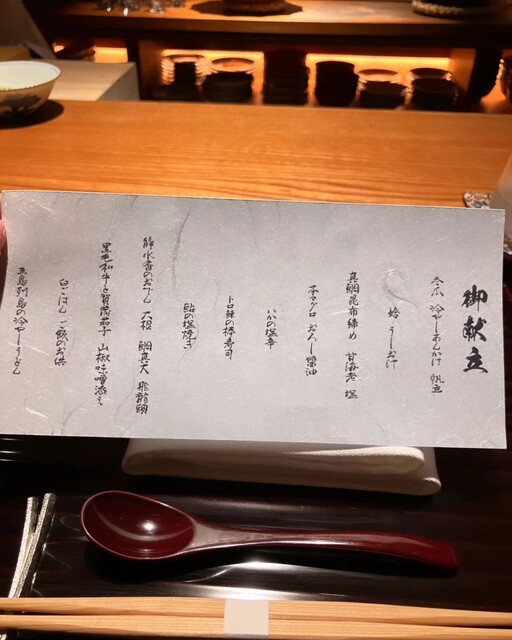 御献立
冬瓜 冷やしあんかけ 帆立
蛤 うしお汁
真鯛昆布締め 甘海老 塩
本マグロ おろし醤油
いかの塩辛
トロ鯖の棒寿司
鮎の塩焼き
静水香のおでん 大根 鯛真丈 飛龍頭
黒毛和牛と賀茂茄子 山椒味噌添え
白ごはん ご飯のお供
五島列島の冷やしうどん